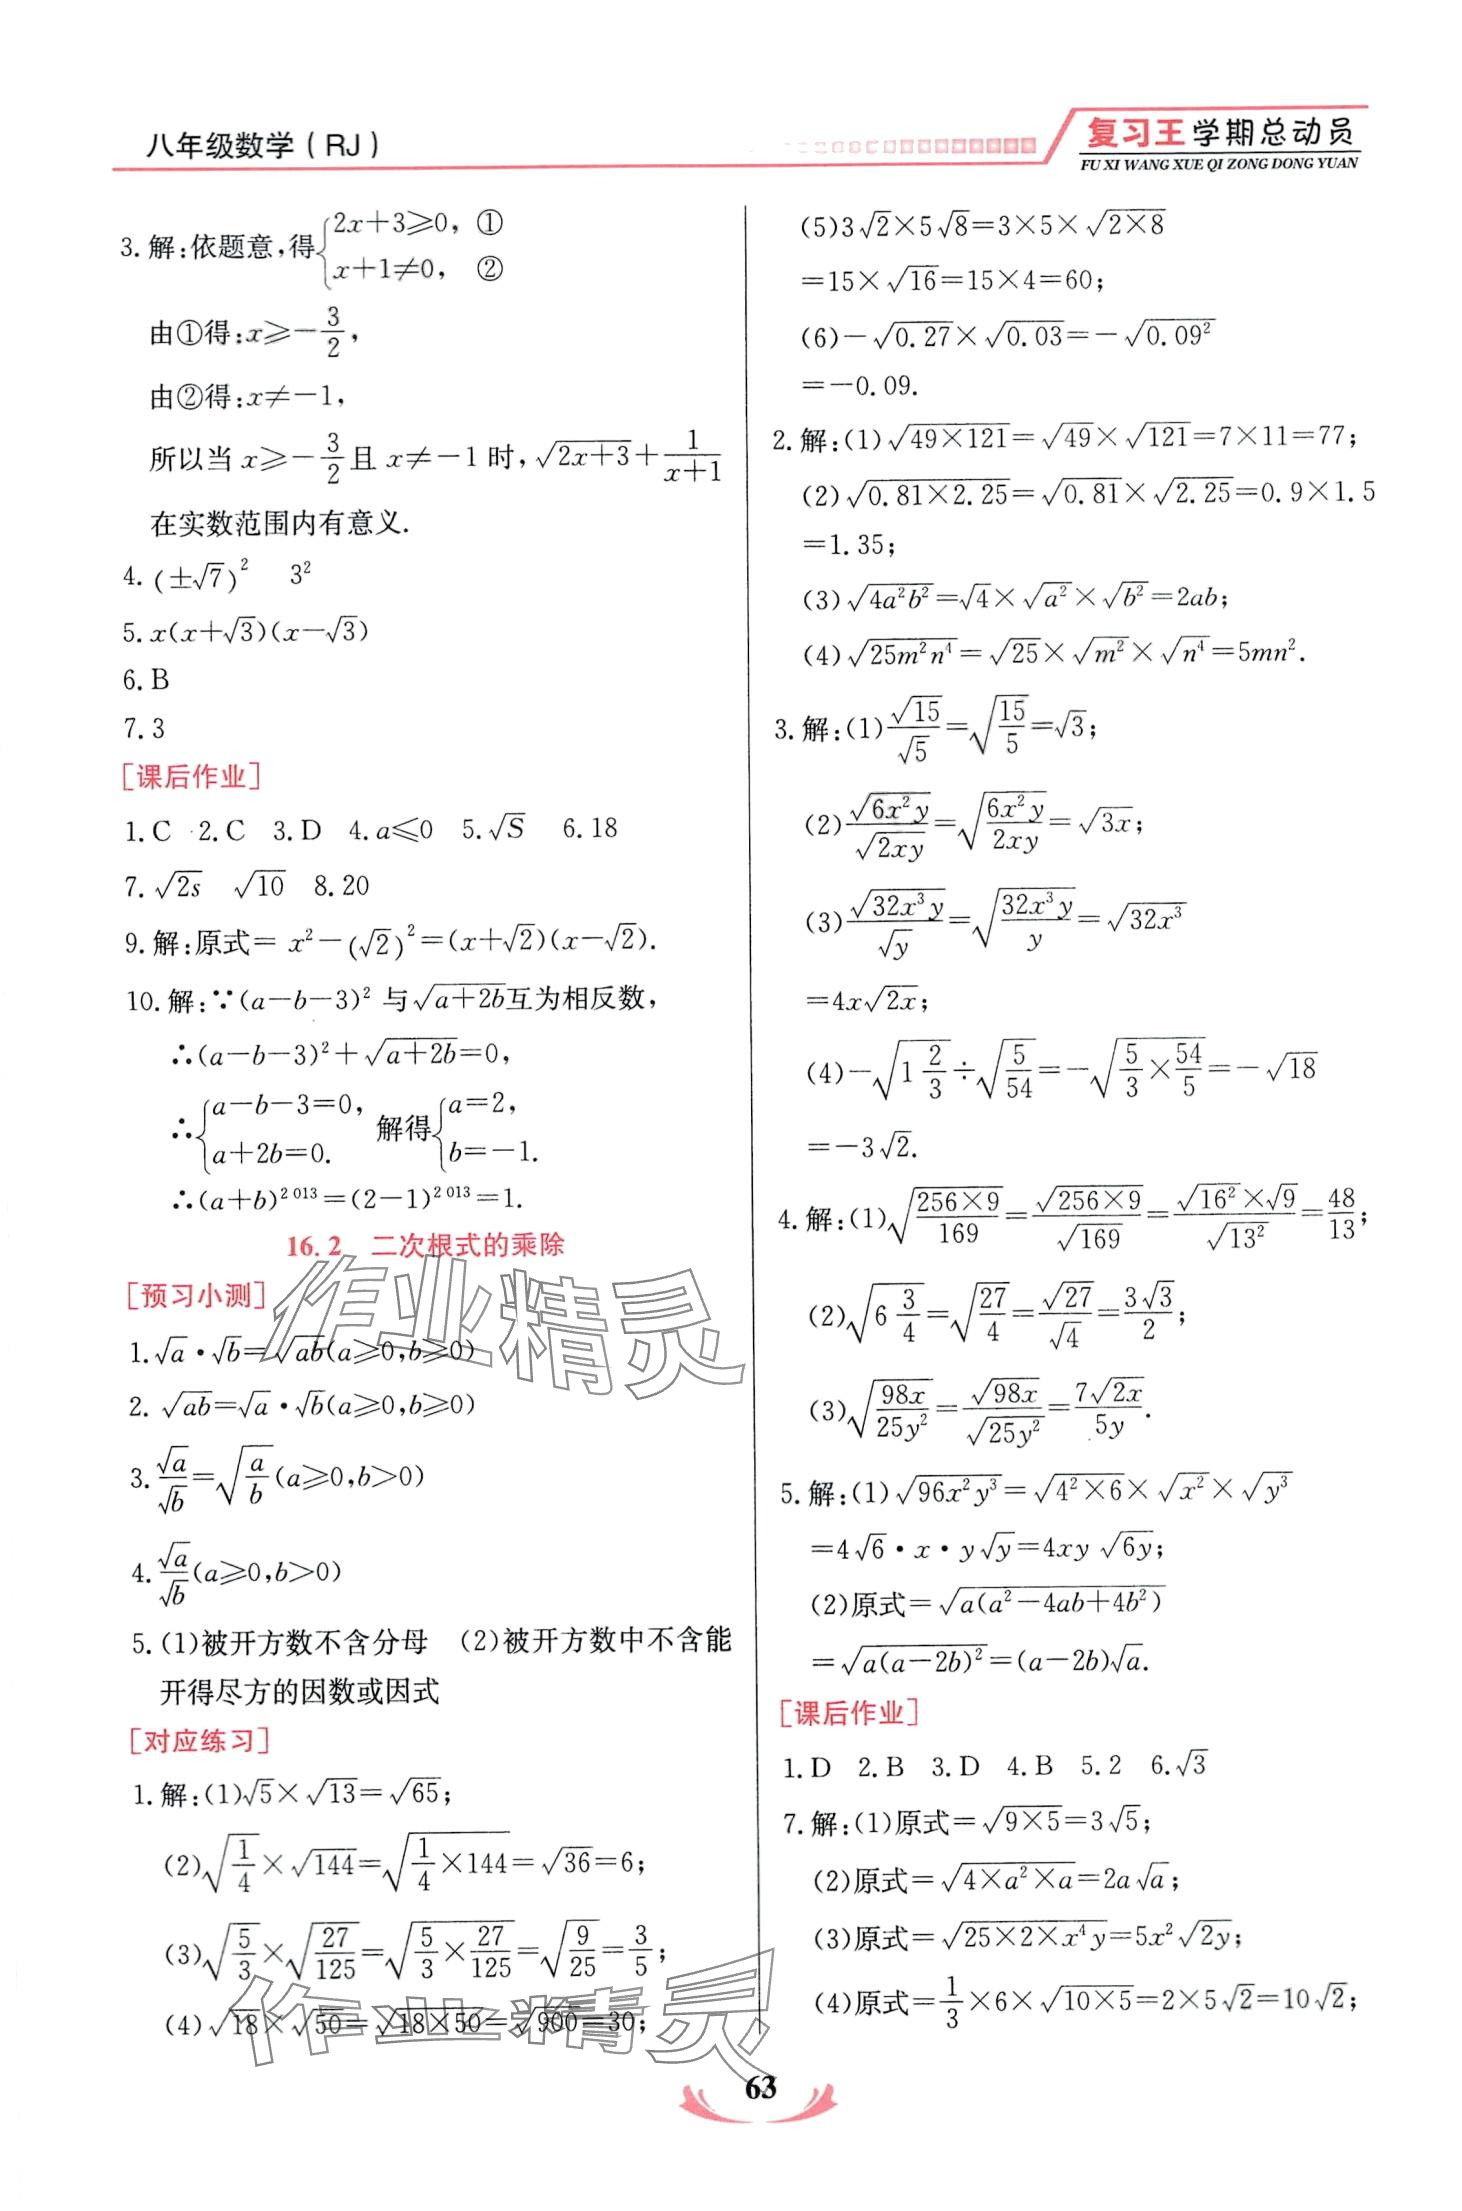 八年级数学(RJ)
复习王学期总动员
FU XI WANG XUE QI ZONG DONG YUAN
3.解:依题意,得{2x+3≥0, ①
x+1≠0, ②
由①得:x≥-3/2,
由②得:x≠-1,
所以当 x≥-3/2且 x≠-1 时,√(2x+3)+1/(x+1)
在实数范围内有意义.
4.(±√7)² 3²
5.x(x+√3)(x-√3)
6.B
7.3
[课后作业]
1.C 2.C 3.D 4.a≤0 5.√S 6.18
7.√(2s) √10 8.20
9.解:原式= x²-(√2)²=(x+√2)(x-√2).
10.解:∵(a-b-3)² 与√(a+2b)互为相反数,
∴(a-b-3)²+√(a+2b)=0,
∴{a-b-3=0, a+2b=0. 解得{a=2, b=-1.
∴(a+b)^2 013=(2-1)^2 013=1.
16.2 二次根式的乘除
[预习小测]
1.√a·√b=√(ab)(a≥0,b≥0)
2.√(ab)=√a·√b(a≥0,b≥0)
3.√a/√b=√(a/b)(a≥0,b>0)
4.√a/√b(a≥0,b>0)
5.(1)被开方数不含分母 (2)被开方数中不含能
开得尽方的因数或因式
[对应练习]
1.解:(1)√5×√13=√65;
(2)√(1/4)×√144=√(1/4×144)=√36=6;
(3)√(5/3)×√(27/125)=√(5/3×27/125)=√(9/25)=3/5;
(4)√18×√50=√(18×50)=√900=30;
(5)3√2×5√8=3×5×√(2×8)
=15×√16=15×4=60;
(6)-√0.27×√0.03=-√(0.09²)
=-0.09.
2.解:(1)√(49×121)=√49×√121=7×11=77;
(2)√(0.81×2.25)=√0.81×√2.25=0.9×1.5
=1.35;
(3)√(4a²b²)=√4×√(a²)×√(b²)=2ab;
(4)√(25m²n⁴)=√25×√(m²)×√(n⁴)=5mn².
3.解:(1)√15/√5=√(15/5)=√3;
(2)√(6x²y)/√(2xy)=√(6x²y/2xy)=√(3x);
(3)√(32x³y)/√y=√(32x³y/y)=√(32x³)
=4x√(2x);
(4)-√(1 2/3)÷√(5/54)=-√(5/3×54/5)=-√18
=-3√2.
4.解:(1)√(256×9/169)=√(256×9)/√169=√(16²)×√9/√(13²)=48/13;
(2)√(6 3/4)=√(27/4)=√27/√4=3√3/2;
(3)√(98x/25y²)=√(98x)/√(25y²)=7√(2x)/5y.
5.解:(1)√(96x²y³)=√(4²×6)×√(x²)×√(y³)
=4√6·x·y√y=4xy√(6y);
(2)原式=√(a(a²-4ab+4b²))
=√(a(a-2b)²)=(a-2b)√a.
[课后作业]
1.D 2.B 3.D 4.B 5.2 6.√3
7.解:(1)原式=√(9×5)=3√5;
(2)原式=√(4×a²×a)=2a√a;
(3)原式=√(25×2×x⁴y)=5x²√(2y);
(4)原式=1/3×6×√(10×5)=2×5√2=10√2;
作业精灵
作业精灵
63